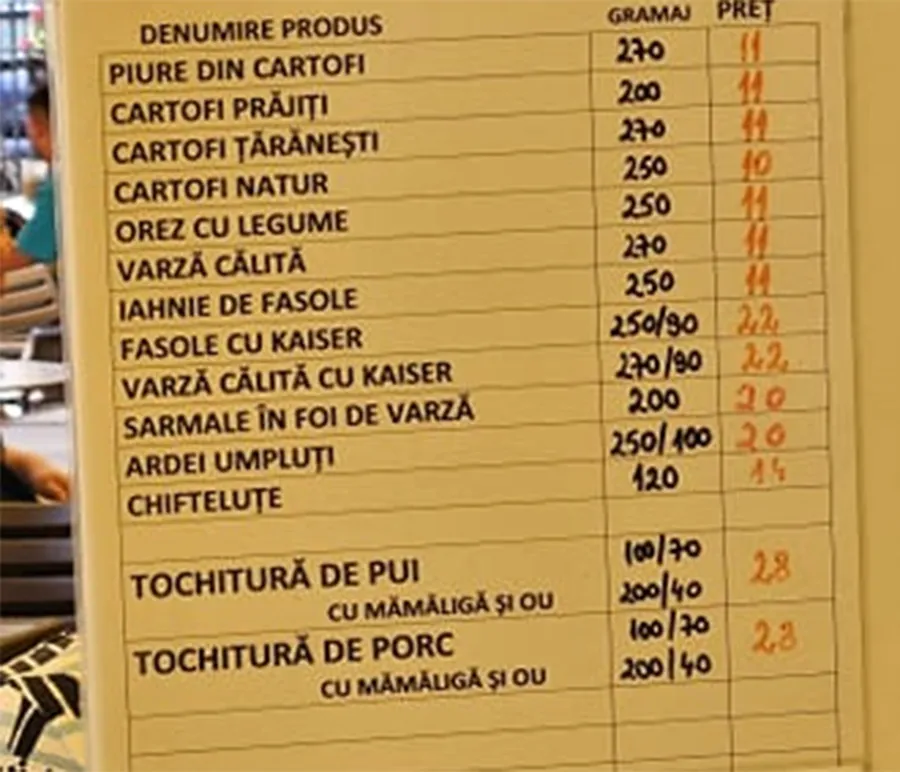 DENUMIRE PRODUS GRAMAJ PREȚ
PIURE DIN CARTOFI 270 11
CARTOFI PRĂJIȚI 200 11
CARTOFI ȚĂRĂNEȘTI 270 11
CARTOFI NATUR 250 10
OREZ CU LEGUME 250 11
VARZĂ CĂLITĂ 270 11
IAHNIE DE FASOLE 250 11
FASOLE CU KAISER 250/90 22
VARZĂ CĂLITĂ CU KAISER 270/90 22
SARMALE ÎN FOI DE VARZĂ 200 20
ARDEI UMPLUȚI 250/100 20
CHIFTELUȚE 120 14
TOCHITURĂ DE PUI 100/70 28
CU MĂMĂLIGĂ ȘI OU 200/40
TOCHITURĂ DE PORC 100/70
CU MĂMĂLIGĂ ȘI OU 200/40